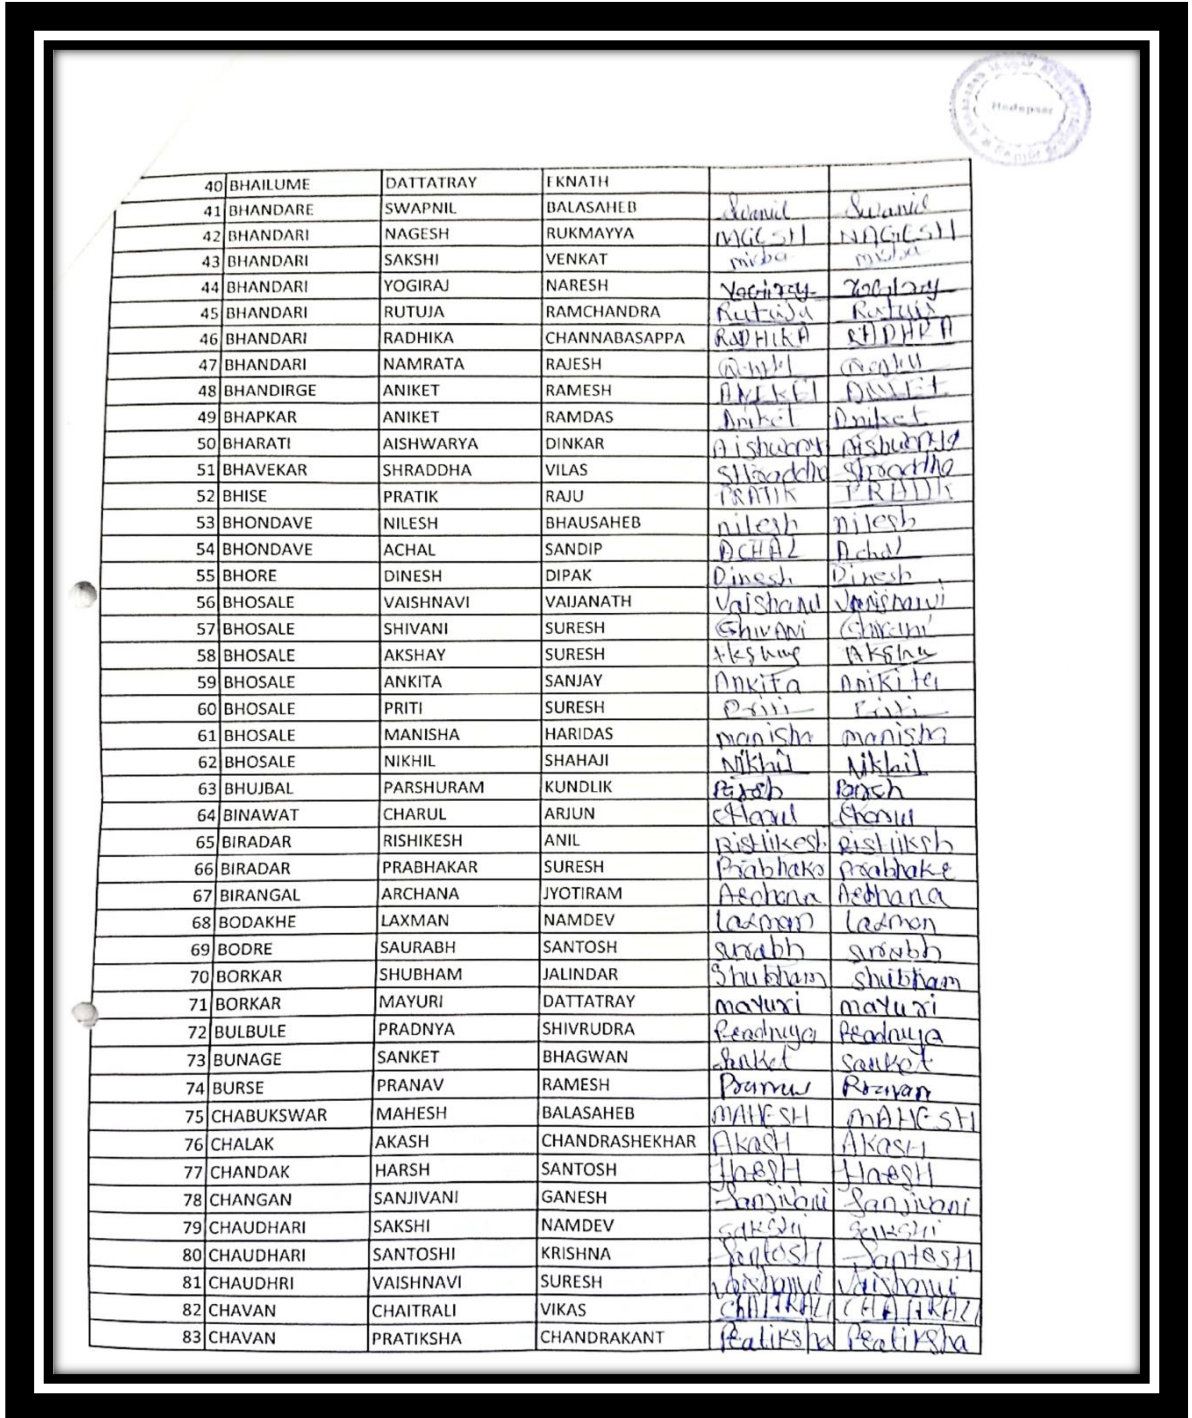 Hadapsar
40 BHAILUME DATTATRAY EKNATH
41 BHANDARE SWAPNIL BALASAHEB Swanil Swanil
42 BHANDARI NAGESH RUKMAYYA NAGESH NAGESH
43 BHANDARI SAKSHI VENKAT
44 BHANDARI YOGIRAJ NARESH
45 BHANDARI RUTUJA RAMCHANDRA Rutuja
46 BHANDARI RADHIKA CHANNABASAPPA RADHIKA
47 BHANDARI NAMRATA RAJESH
48 BHANDIRGE ANIKET RAMESH ANIKET
49 BHAPKAR ANIKET RAMDAS Aniket Aniket
50 BHARATI AISHWARYA DINKAR
51 BHAVEKAR SHRADDHA VILAS Shraddha
52 BHISE PRATIK RAJU PRATIK PRATIK
53 BHONDAVE NILESH BHAUSAHEB nilesh nilesh
54 BHONDAVE ACHAL SANDIP ACHAL Achal
55 BHORE DINESH DIPAK Dinesh Dinesh
56 BHOSALE VAISHNAVI VAIJANATH
57 BHOSALE SHIVANI SURESH SHIVANI
58 BHOSALE AKSHAY SURESH
59 BHOSALE ANKITA SANJAY Ankita
60 BHOSALE PRITI SURESH Priti Priti
61 BHOSALE MANISHA HARIDAS manisha manisha
62 BHOSALE NIKHIL SHAHAJI Nikhil Nikhil
63 BHUJBAL PARSHURAM KUNDLIK
64 BINAWAT CHARUL ARJUN Charul Charul
65 BIRADAR RISHIKESH ANIL RISHIKESH
66 BIRADAR PRABHAKAR SURESH
67 BIRANGAL ARCHANA JYOTIRAM Archana Archana
68 BODAKHE LAXMAN NAMDEV Laxman Laxman
69 BODRE SAURABH SANTOSH
70 BORKAR SHUBHAM JALINDAR Shubham Shubham
71 BORKAR MAYURI DATTATRAY mayuri mayuri
72 BULBULE PRADNYA SHIVRUDRA Pradnya Pradnya
73 BUNAGE SANKET BHAGWAN Sanket Sanket
74 BURSE PRANAV RAMESH
75 CHABUKSWAR MAHESH BALASAHEB MAHESH MAHESH
76 CHALAK AKASH CHANDRASHEKHAR AKASH AKASH
77 CHANDAK HARSH SANTOSH Harsh Harsh
78 CHANGAN SANJIVANI GANESH Sanjivani Sanjivani
79 CHAUDHARI SAKSHI NAMDEV sakshi sakshi
80 CHAUDHARI SANTOSHI KRISHNA SantosH SantosH
81 CHAUDHRI VAISHNAVI SURESH
82 CHAVAN CHAITRALI VIKAS CHAITRALI CHAITRALI
83 CHAVAN PRATIKSHA CHANDRAKANT Pratiksha Pratiksha